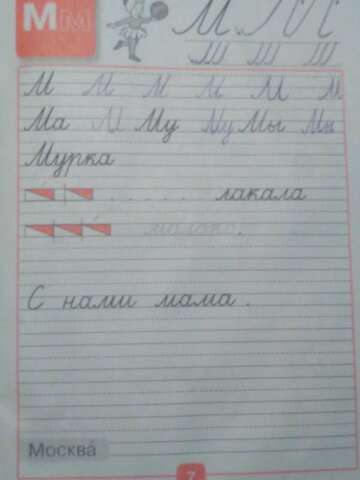 Мм
М М М М М М
Ма М Му Му Мы Мы
Мурка
лакала
молоко.
С нами мама.
Москва́
7